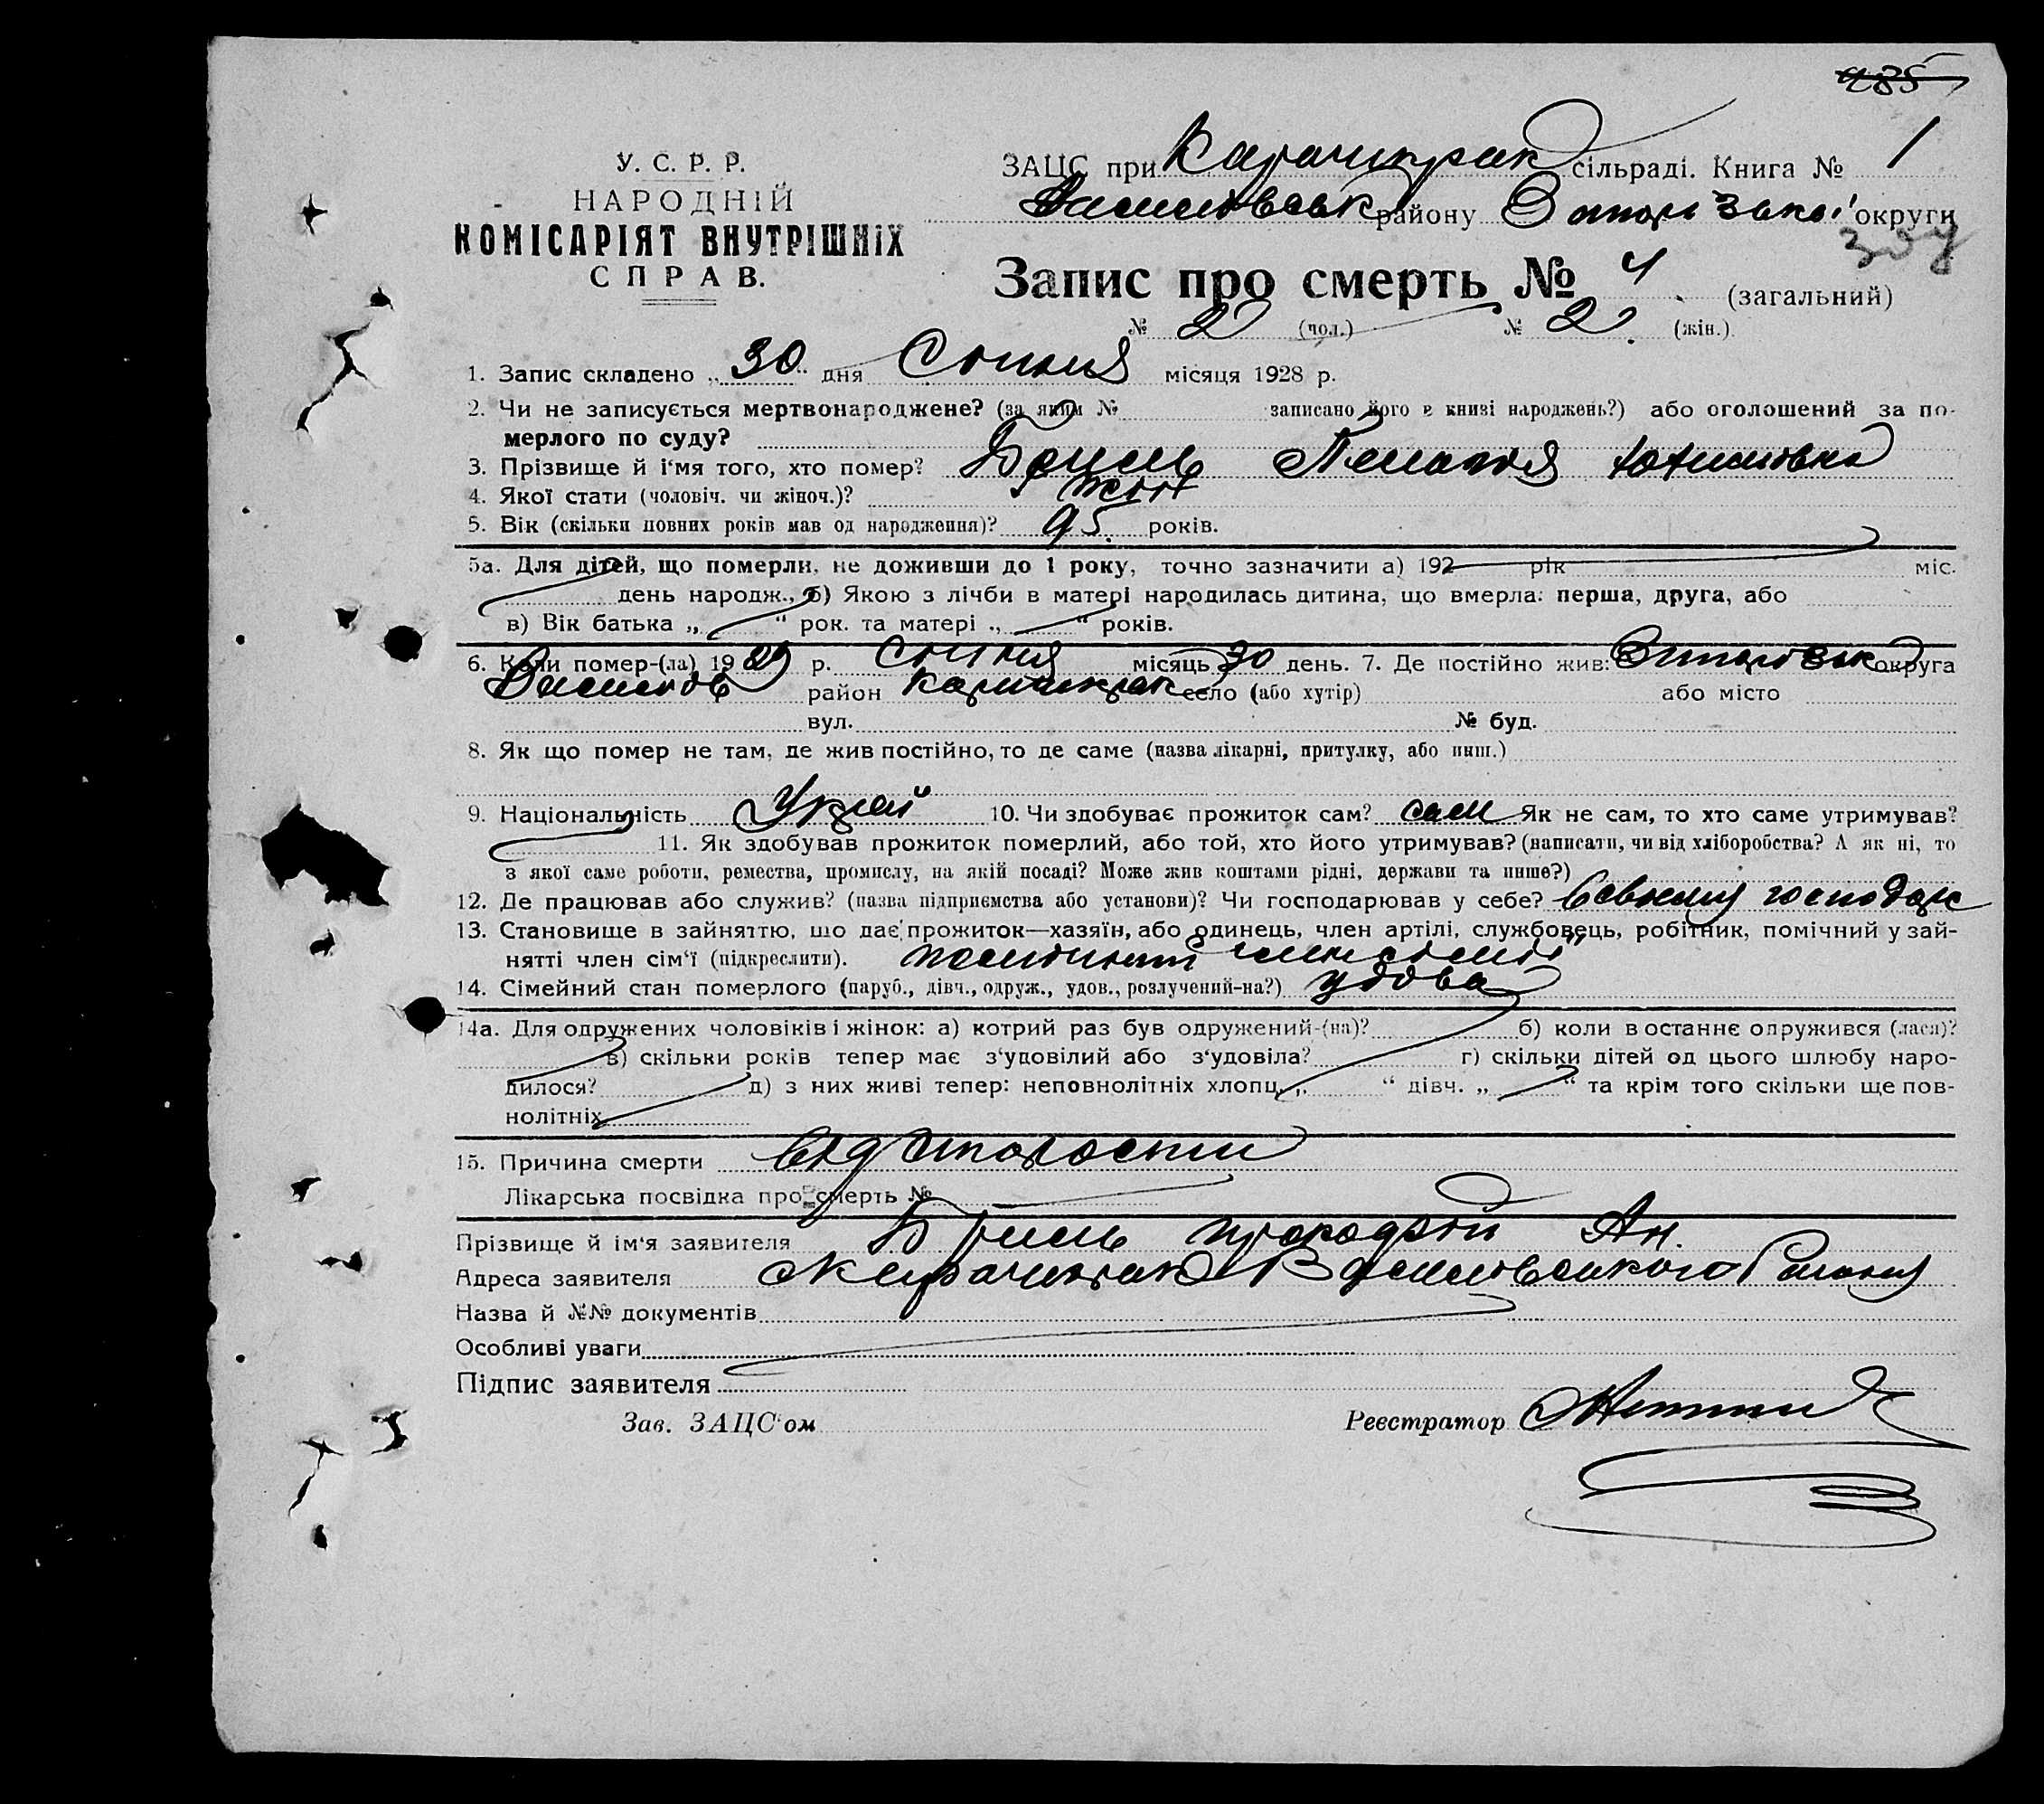 485
У. С. Р. Р.
НАРОДНІЙ
КОМІСАРІЯТ ВНУТРІШНІХ
СПРАВ.
ЗАЦС при Карачикрак сільраді. Книга № 1
району Запорізької округи
Запис про смерть № 4 (загальний)
№ 2 (чол.) № 2 (жін.)
1. Запис складено „30" дня Січня місяця 1928 р.
2. Чи не записується мертвонароджене? (за яким № записано його в книзі народжень?) або оголошений за по-
мерлого по суду?
3. Прізвище й ім'я того, хто помер? Пелагія
4. Якої стати (чоловіч. чи жіноч.)? жін
5. Вік (скільки повних років мав од народження)? 95 років.
5а. Для дітей, що померли, не доживши до 1 року, точно зазначити а) 192 рік міс.
день народж., б) Якою з лічби в матері народилась дитина, що вмерла: перша, друга, або
в) Вік батька „ " рок. та матері „ " років.
6. Коли помер-(ла) 19 р. Січня місяць 30 день. 7. Де постійно жив: округа
район Карачикрак село (або хутір) або місто
вул. № буд.
8. Як що помер не там, де жив постійно, то де саме (назва лікарні, притулку, або инш.)
9. Національність Украй 10. Чи здобуває прожиток сам? сам Як не сам, то хто саме утримував?
11. Як здобував прожиток померлий, або той, хто його утримував? (написати, чи від хліборобства? А як ні, то
з якої саме роботи, ремества, промислу, на якій посаді? Може жив коштами рідні, держави та инше?)
12. Де працював або служив? (назва підприємства або установи)? Чи господарював у себе? господар
13. Становище в зайняттю, що дає прожиток—хазяїн, або одинець, член артілі, службовець, робітник, помічний у зай-
нятті член сім'ї (підкреслити).
14. Сімейний стан померлого (паруб., дівч., одруж., удов., розлучений-на?) удова
14а. Для одружених чоловіків і жінок: а) котрий раз був одружений-(на)? б) коли востаннє одружився (лася)?
в) скільки років тепер має з'удовілий або з'удовіла? г) скільки дітей од цього шлюбу наро-
дилося? д) з них живі тепер: неповнолітніх хлопц. „ " дівч. „ " та крім того скільки ще пов-
нолітніх
15. Причина смерти Від старости
Лікарська посвідка про смерть №
Прізвище й ім'я заявителя Ан.
Адреса заявителя с Карачикрак Василівського Району
Назва й №№ документів
Особливі уваги
Підпис заявителя
Зав. ЗАЦС'ом Реєстратор